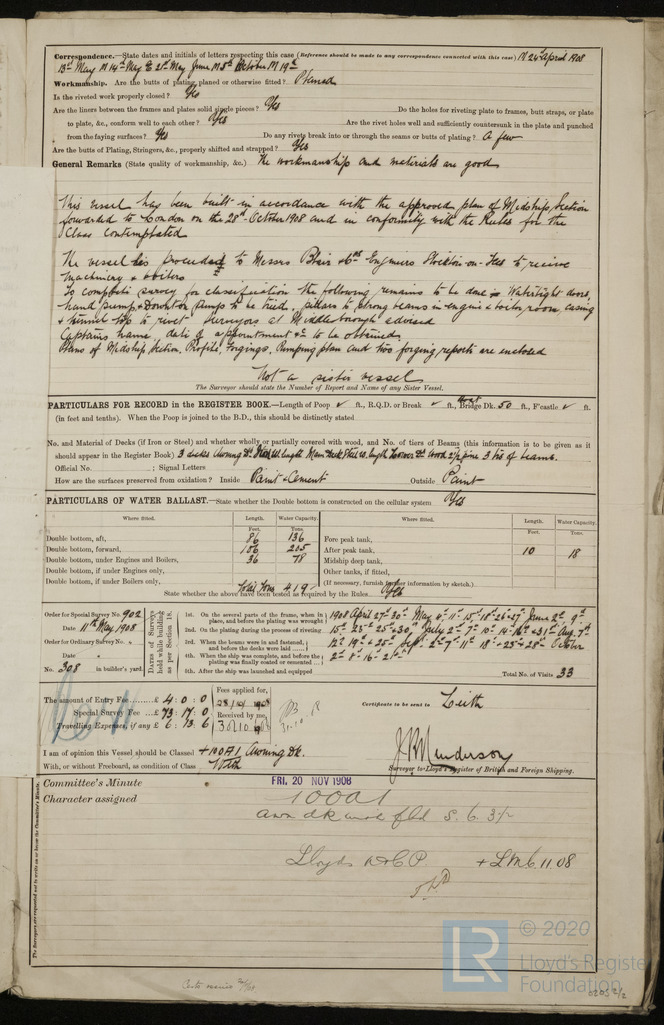 Correspondence.—State dates and initials of letters respecting this case (Reference should be made to any correspondence connected with this case) M 24th April 1908
13th May M 14th May E 21st May June M 5th October M 19th
Workmanship. Are the butts of plating planed or otherwise fitted? Planed
Is the riveted work properly closed? Yes
Are the liners between the frames and plates solid single pieces? Yes Do the holes for riveting plate to frames, butt straps, or plate
to plate, &c., conform well to each other? Yes Are the rivet holes well and sufficiently countersunk in the plate and punched
from the faying surfaces? Yes Do any rivets break into or through the seams or butts of plating? A few
Are the butts of Plating, Stringers, &c., properly shifted and strapped? Yes
General Remarks (State quality of workmanship, &c.) The workmanship and materials are good
This vessel has been built in accordance with the approved plan of Midship Section
forwarded to London on the 28th October 1908 and in conformity with the Rules for the
Class contemplated
The vessel has proceeded to Messrs Blair & Co Engineers Stockton-on-Tees to receive
machinery & boilers
To complete survey for classification the following remains to be done is Watertight doors,
hand pump & Downton pumps to be tried, pillars to strong beams in engine & boiler room casing
& tunnel top to rivet. Surveyors at Middlesborough advised
Captains name, date of appointment &c to be obtained
Plans of Midship Section, Profile, Forgings, Pumping plan and two forging reports are enclosed
Not a sister vessel
The Surveyor should state the Number of Report and Name of any Sister Vessel.
PARTICULARS FOR RECORD in the REGISTER BOOK.—Length of Poop ✓ ft., R.Q.D. or Break ✓ ft., Bridge Dk. 50 ft., F'castle ✓ ft.
(in feet and tenths). When the Poop is joined to the B.D., this should be distinctly stated
No. and Material of Decks (if Iron or Steel) and whether wholly or partially covered with wood, and No. of tiers of Beams (this information is to be given as it
should appear in the Register Book) 3 decks Awning Dk Main Deck Steel Lower Dk wood 3 trs of beams.
Official No. ; Signal Letters
How are the surfaces preserved from oxidation? Inside Paint & Cement Outside Paint
PARTICULARS OF WATER BALLAST.—State whether the Double bottom is constructed on the cellular system Yes
Where fitted. Length. Water Capacity. Where fitted. Length. Water Capacity.
Feet. Tons. Feet. Tons.
Double bottom, aft, 86 136 Fore peak tank,
Double bottom, forward, 106 205 After peak tank, 10 18
Double bottom, under Engines and Boilers, 36 78 Midship deep tank,
Double bottom, if under Engines only, Other tanks, if fitted,
Double bottom, if under Boilers only, Total Tons 419 (If necessary, furnish further information by sketch.)
State whether the above have been tested as required by the Rules Yes
Order for Special Survey No. 902
Date 11th May 1908
Order for Ordinary Survey No. "
Date "
No. 308 in builder's yard.
Dates of Surveys held while building as per Section 18.
1st. On the several parts of the frame, when in place, and before the plating was wrought 1908 April 27th 30th May 6th 11th 15th 18th 26th 27th June 2nd 9th
2nd. On the plating during the process of riveting 15th 23rd 25th & 30th July 2nd 7th 10th 14th 16th & 31st Aug. 7th
3rd. When the beams were in and fastened, and before the decks were laid 12th 19th & 25th Sept. 2nd 7th 11th 18th & 23rd & 28th October
4th. When the ship was complete, and before the plating was finally coated or cemented 2nd 8th 16th 21st
5th. After the ship was launched and equipped Total No. of Visits 33
The amount of Entry Fee £ 4 : 0 : 0
Special Survey Fee £ 73 : 17 : 0
Travelling Expenses, if any £ 6 : 13 : 6
Fees applied for, 28/10/1908
Received by me, 30/10/1908
Certificate to be sent to Leith
I am of opinion this Vessel should be Classed +100A1. Awning Dk.
With, or without Freeboard, as condition of Class With
Surveyor to Lloyd's Register of British and Foreign Shipping.
Committee's Minute FRI. 20 NOV 1908
Character assigned 100A1
Awn dk
Lloyds A&CP. + LMC 11.08
The Surveyors are requested not to write on or below the Committee's Minute.
© 2020
LR
Lloyd's Register
Foundation
0205 2/2